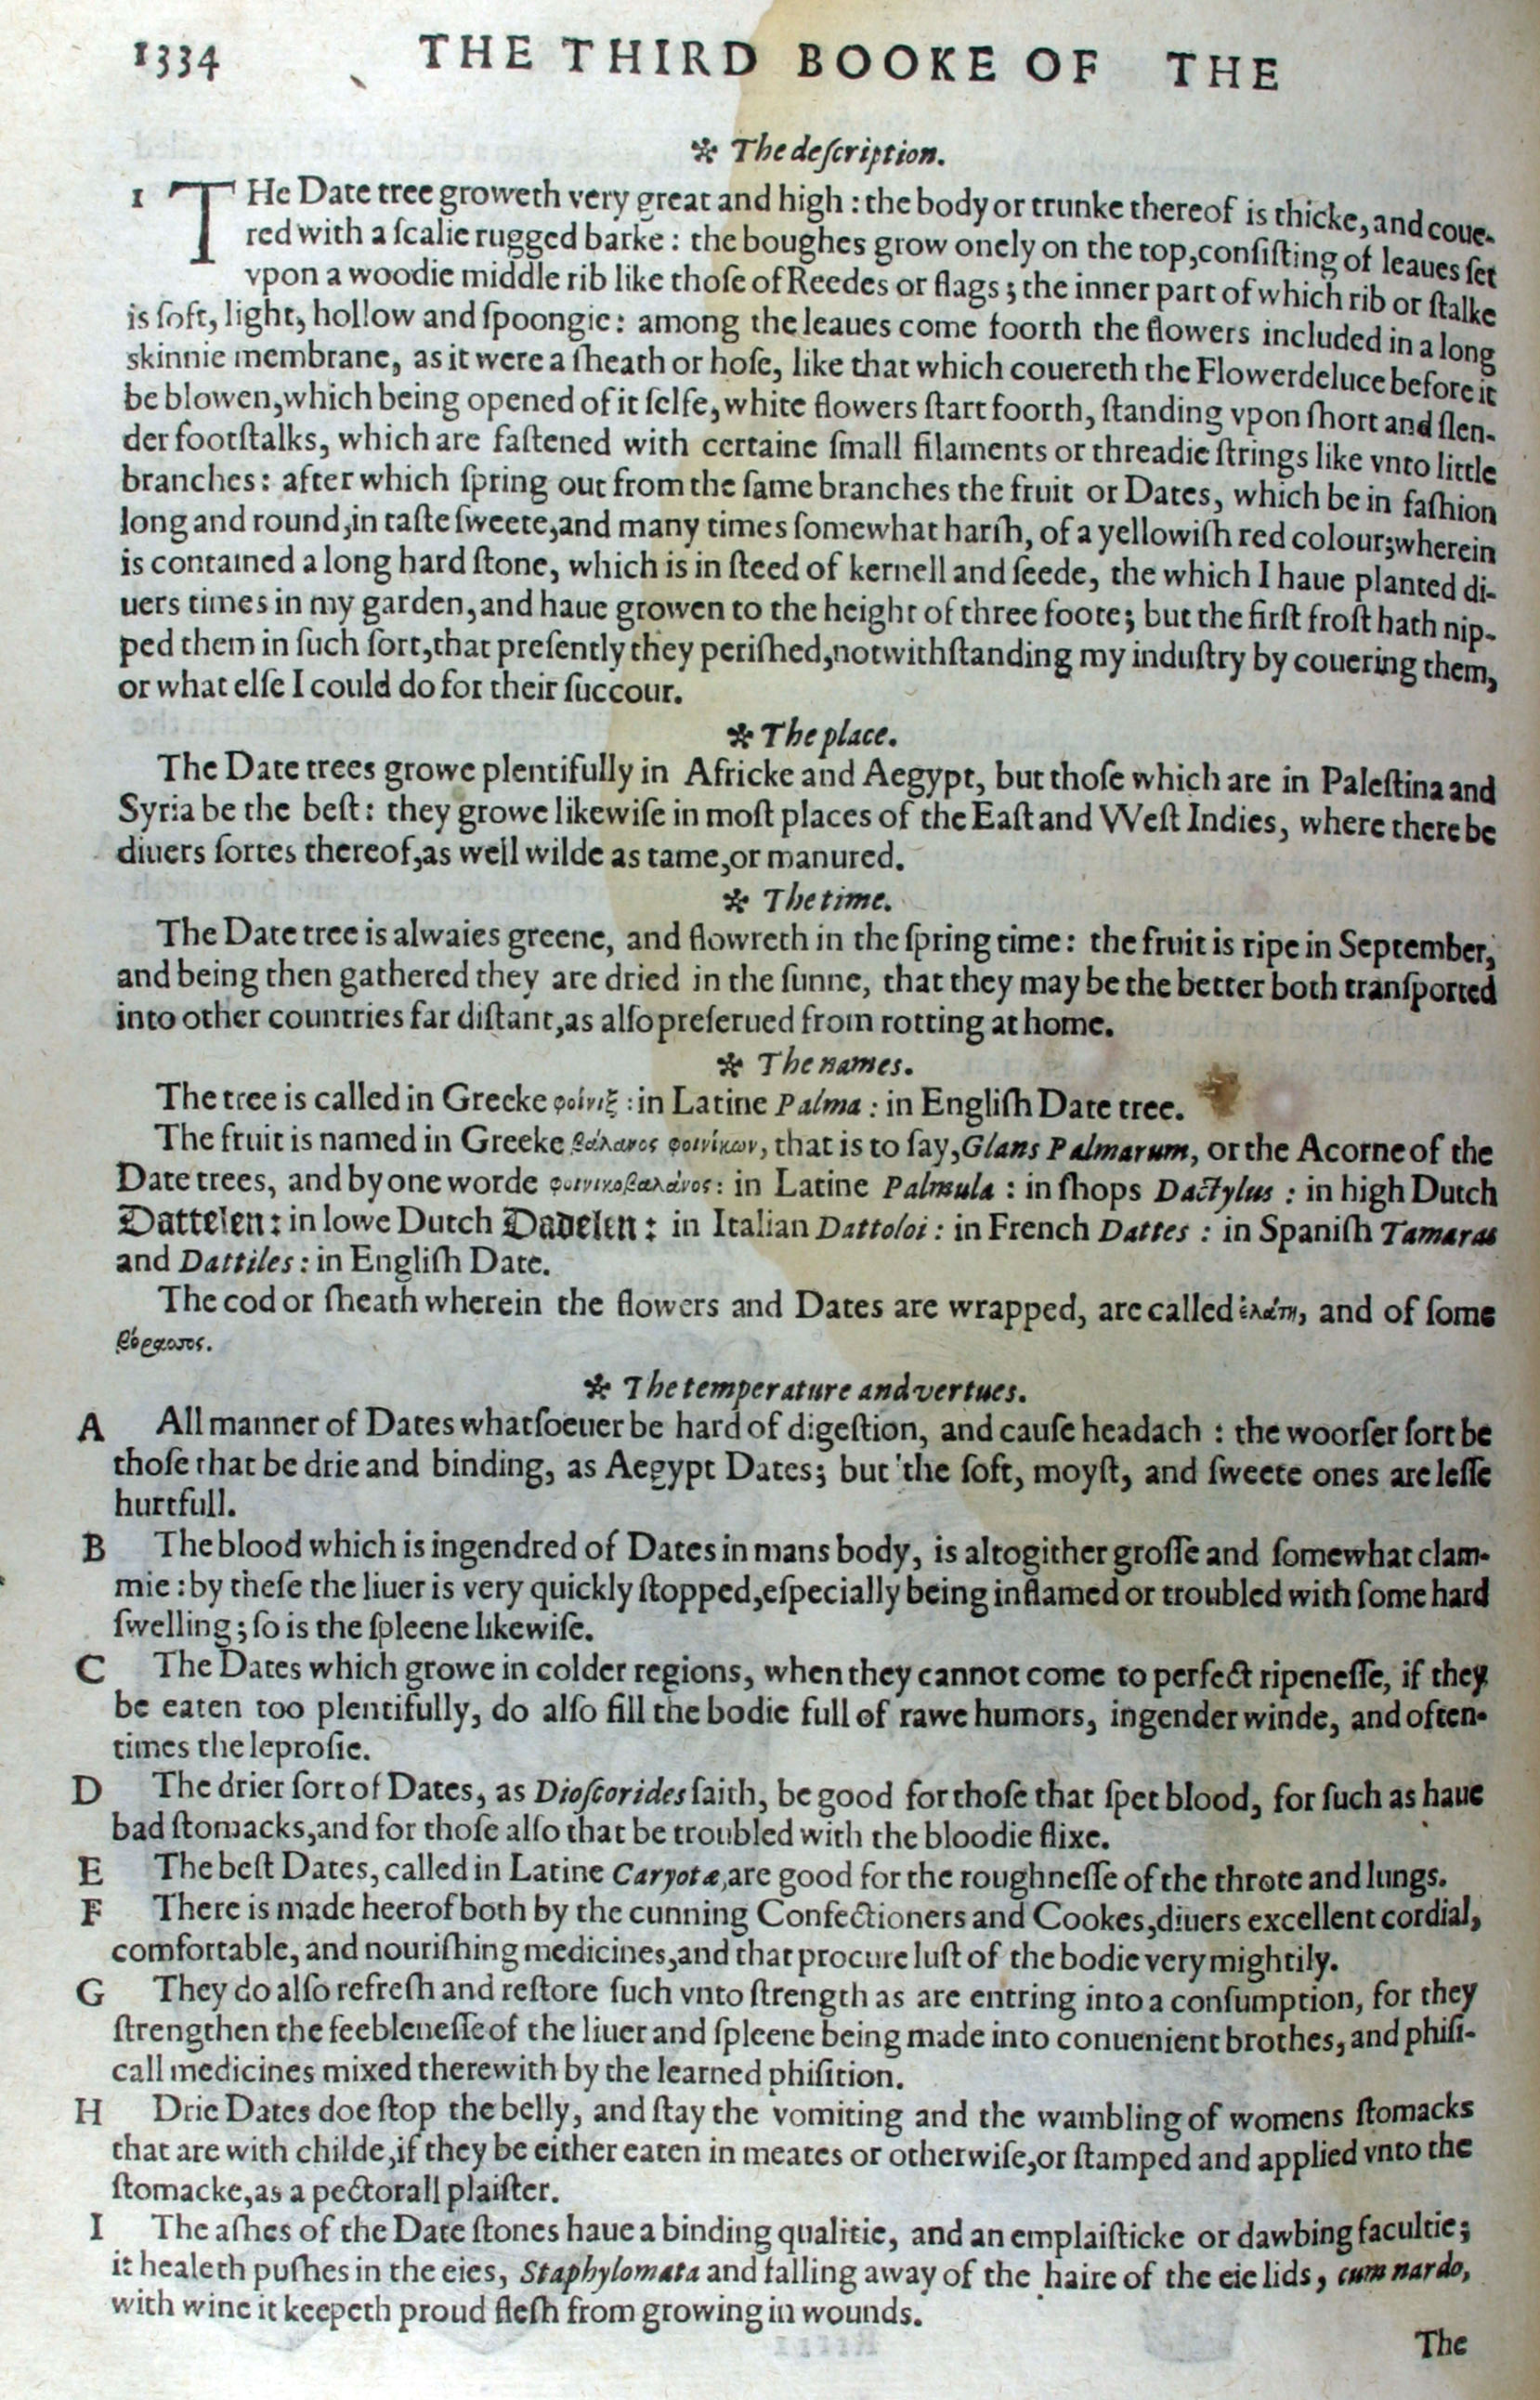 1334 THE THIRD BOOKE OF THE
✼ The deſcription.
1 THe Date tree groweth very great and high : the body or trunke thereof is thicke, and coue-
red with a ſcalie rugged barke : the boughes grow onely on the top, conſiſting of leaues ſet
vpon a woodie middle rib like thoſe of Reedes or flags ; the inner part of which rib or ſtalke
is ſoft, light, hollow and ſpoongie : among the leaues come foorth the flowers included in a long
skinnie membrane, as it were a ſheath or hoſe, like that which couereth the Flowerdeluce before it
be blowen, which being opened of it ſelfe, white flowers ſtart foorth, ſtanding vpon ſhort and ſlen-
der footſtalks, which are faſtened with certaine ſmall filaments or threadie ſtrings like vnto little
branches : after which ſpring out from the ſame branches the fruit or Dates, which be in faſhion
long and round, in taſte ſweete, and many times ſomewhat harſh, of a yellowiſh red colour; wherein
is contained a long hard ſtone, which is in ſteed of kernell and ſeede, the which I haue planted di-
uers times in my garden, and haue growen to the height of three foote; but the firſt froſt hath nip-
ped them in ſuch ſort, that preſently they periſhed, notwithſtanding my induſtry by couering them,
or what elſe I could do for their ſuccour.
✼ The place.
The Date trees growe plentifully in Africke and Aegypt, but thoſe which are in Paleſtina and
Syria be the beſt : they growe likewiſe in moſt places of the Eaſt and Weſt Indies, where there be
diuers ſortes thereof, as well wilde as tame, or manured.
✼ The time.
The Date tree is alwaies greene, and flowreth in the ſpring time : the fruit is ripe in September,
and being then gathered they are dried in the ſunne, that they may be the better both tranſported
into other countries far diſtant, as alſo preſerued from rotting at home.
✼ The names.
The tree is called in Greeke φοίνιξ : in Latine Palma : in Engliſh Date tree.
The fruit is named in Greeke βάλανος φοινίκων, that is to ſay, Glans Palmarum, or the Acorne of the
Date trees, and by one worde φοινικοβαλάνος : in Latine Palmula : in ſhops Dactylus : in high Dutch
Dattelen : in lowe Dutch Dadelen : in Italian Dattoloi : in French Dattes : in Spaniſh Tamaras
and Dattiles : in Engliſh Date.
The cod or ſheath wherein the flowers and Dates are wrapped, are called ἐλάτη, and of ſome
βόρασσος.
✼ The temperature and vertues.
A All manner of Dates whatſoeuer be hard of digeſtion, and cauſe headach : the woorſer ſort be
thoſe that be drie and binding, as Aegypt Dates; but the ſoft, moyſt, and ſweete ones are leſſe
hurtfull.
B The blood which is ingendred of Dates in mans body, is altogither groſſe and ſomewhat clam-
mie : by theſe the liuer is very quickly ſtopped, eſpecially being inflamed or troubled with ſome hard
ſwelling ; ſo is the ſpleene likewiſe.
C The Dates which growe in colder regions, when they cannot come to perfect ripeneſſe, if they
be eaten too plentifully, do alſo fill the bodie full of rawe humors, ingender winde, and often-
times the leproſie.
D The drier ſort of Dates, as Dioſcorides ſaith, be good for thoſe that ſpet blood, for ſuch as haue
bad ſtomacks, and for thoſe alſo that be troubled with the bloodie flixe.
E The beſt Dates, called in Latine Caryotæ, are good for the roughneſſe of the throte and lungs.
F There is made heerof both by the cunning Confectioners and Cookes, diuers excellent cordial,
comfortable, and nouriſhing medicines, and that procure luſt of the bodie very mightily.
G They do alſo refreſh and reſtore ſuch vnto ſtrength as are entring into a conſumption, for they
ſtrengthen the feebleneſſe of the liuer and ſpleene being made into conuenient brothes, and phiſi-
call medicines mixed therewith by the learned phiſition.
H Drie Dates doe ſtop the belly, and ſtay the vomiting and the wambling of womens ſtomacks
that are with childe, if they be either eaten in meates or otherwiſe, or ſtamped and applied vnto the
ſtomacke, as a pectorall plaiſter.
I The aſhes of the Date ſtones haue a binding qualitie, and an emplaiſticke or dawbing facultie;
it healeth puſhes in the eies, Staphylomata and falling away of the haire of the eie lids, cum nardo,
with wine it keepeth proud fleſh from growing in wounds.
The